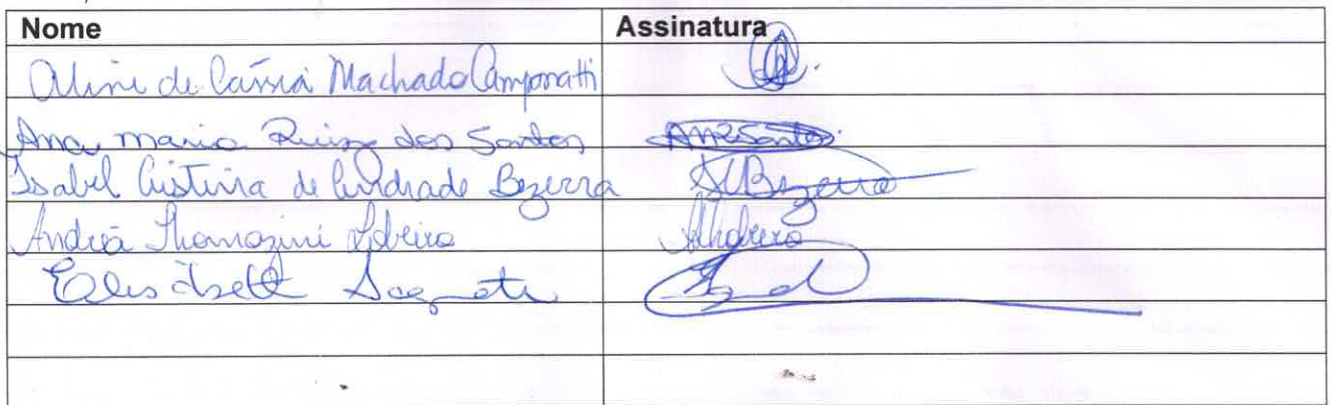 Nome Assinatura
Aline de Cássia Machado Camponatti
Ana Maria Ruiz dos Santos AMRSantos
Isabel Cristina de Andrade Bezerra ICBezerra
Andréa Thomazini
Elisabett